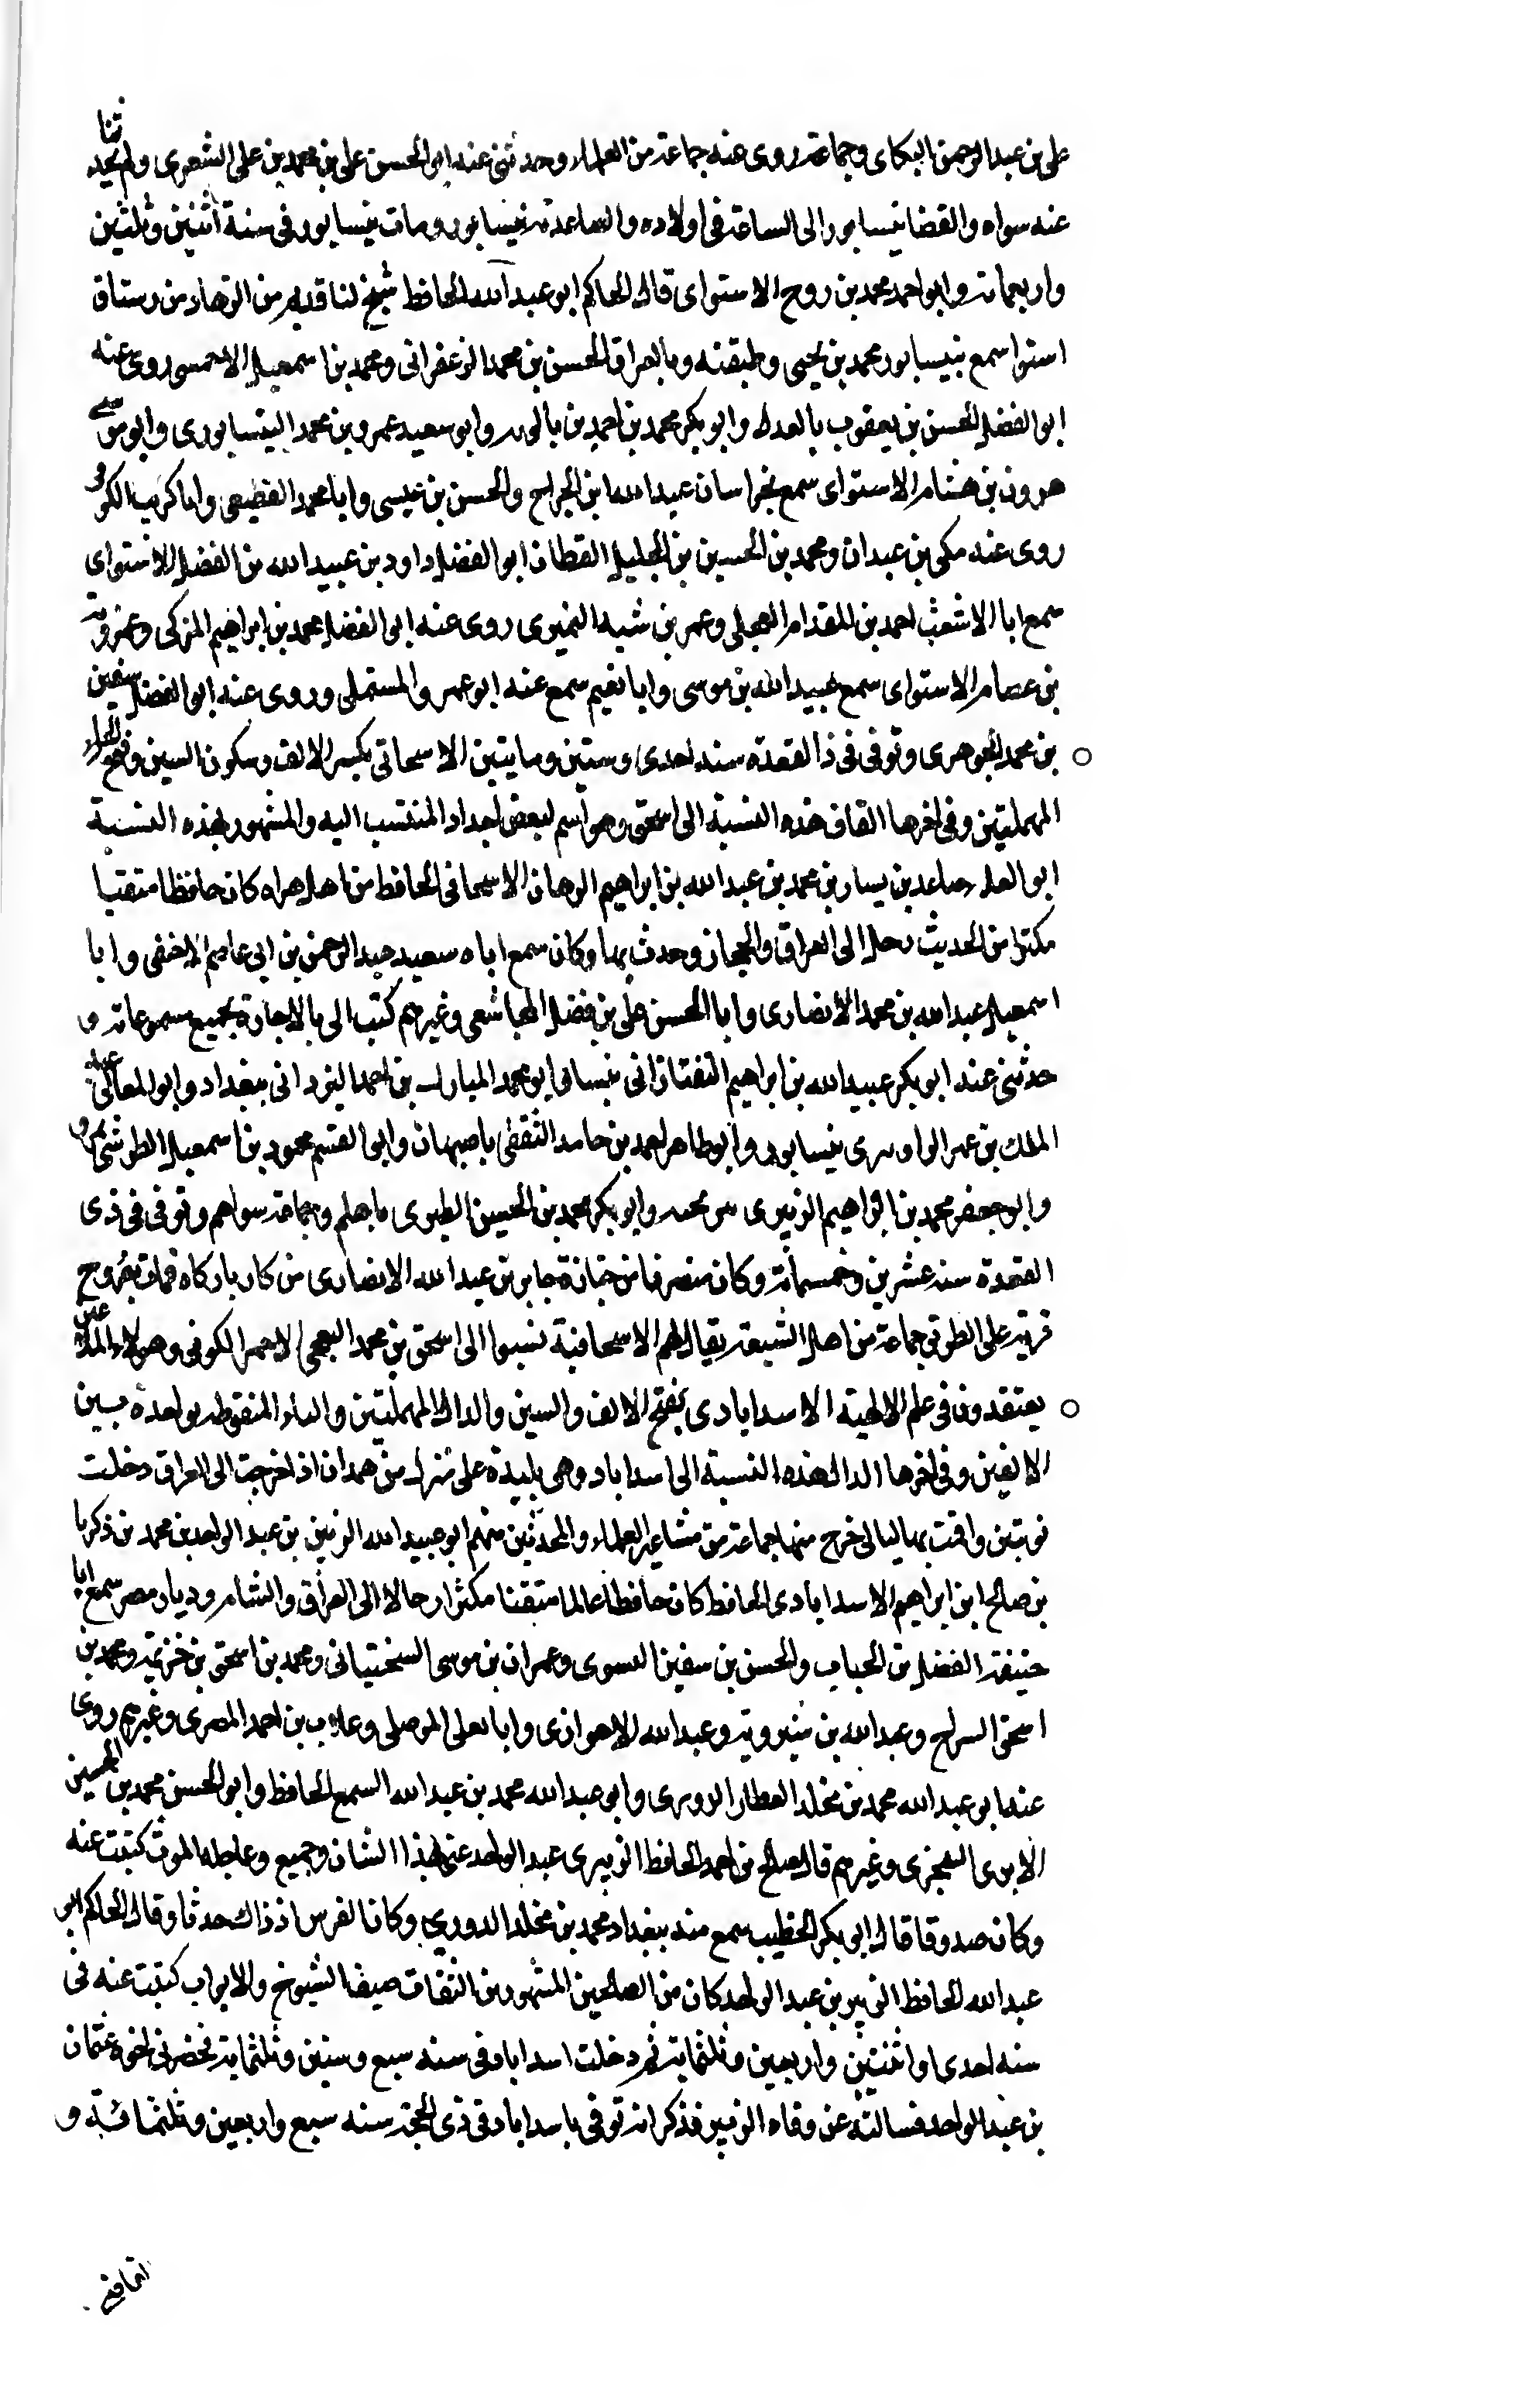 على بن عبد الرحمن البكاى وجماعة روى عنه جماعة من العلماء وحدثنى عنه ابو الحسن على بن محمد بن على الشعرى ولم يحدثنا
عنه سواه والقضا بنيسابور الى الساعة فى اولاده والصاعدية بنيسابور ومات بنيسابور فى سنة اثنين وثلثين
واربعمائة وابو احمد محمد بن روح الاستواى قال الحاكم ابو عبد الله الحافظ شيخ لنا قديم من الزهاد من رستاق
استوا سمع بنيسابور محمد بن يحيى وطبقته وبالعراق الحسن بن محمد الزعفرانى ومحمد بن اسمعيل الاحمسى روى عنه
ابو الفضل الحسن بن يعقوب بالعدل وابو بكر محمد بن احمد بن بالويه وابو سعيد عمرو بن محمد النيسابورى وابو موسى
هرون بن هشام الاستواى سمع بخراسان عبد الله ابن الجراح والحسن بن عيسى وابا محمد القطيعى وابا كريب الكوفى
روى عنه مكى بن عبدان ومحمد بن الحسين بن الجليل القطان ابو الفضل داود بن عبيد الله بن الفضل الاستواى
سمع ابا الاشعث احمد بن المقدام العجلى وعمر بن شبه النميرى روى عنه ابو الفضل محمد بن ابراهيم المزكى وعمرويه
بن عصام الاستواى سمع عبيد الله بن موسى وابا نعيم سمع عنه ابو عمرو المستملى وروى عنه ابو الفضل سفين
بن محمد الجوهرى وتوفى فى ذا القعدة سنة احدى وستين ومايتين الاسحاتى بكسر الالف وسكون السين وفتح الحاء
المهملتين وفى اخرها القاف هذه النسبة الى اسحق وهو اسم لبعض اجداد المنتسب اليه والمشهور بهذه النسبة
ابو العلا صاعد بن يسار بن محمد بن عبد الله بن ابراهيم الوهان الاسحاقى الحافظ من اهل هراه كان حافظا متقنا
مكثرا من الحديث رحل الى العراق والحجاز وحدث بها وكان سمع اباه سعيد عبد الرحمن بن ابى عاصم الاخفى وابا
اسمعيل عبد الله بن محمد الانصارى وابا الحسن على بن فضل المجاشعى وغيرهم كتب الى بالاجازة بجميع مسموعاته و
حدثنى عنه ابو بكر عبيد الله بن ابراهيم التفتازانى بنسا وابو محمد المبارك بن احمد اليزدانى ببغداد وابو المعالى عبد
الملك بن عمر الواورى بنيسابور وابو طاهر احمد بن حامد الثقفى باصبهان وابو القسم محمود بن اسمعيل الطرشى
وابو جعفر محمد بن ابراهيم الزبيرى وابو بكر محمد بن الحسين الطبرى باهلم وجماعة سواهم وتوفى فى ذى
القعدة سنة عشرين وخمسمائة وكان منصرفا من جنازة جابر بن عبد الله الانصارى من كار باركاه فمات بغروج
قرية على الطرق جماعة من اهل الشيعة يقال لهم الاسحاقية نسبوا الى اسحق بن محمد النجعى الاحمر الكوفى وهولاء الملاعين
يعتقدون فى علم الالهية الاسدابادى بفتح الالف والسين والدال المهملتين والباء المنقوطة بواحدة بين
الالفين وفى اخرها الدال هذه النسبة الى اسداباد وهى بليدة على منزل من همدان اذا خرجت الى العراق دخلت
نوبتين واقمت بها ليالى خرج منها جماعة من مشاهير العلماء والمحدثين منهم ابو عبيد الله الزبين بن عبد الواحد بن محمد بن زكريا
بن صالح ابن ابراهيم الاسدابادى الحافظ كان حافظا عالما متقنا مكثرا رحالا الى العراق والشام وديار مصر سمع ابا
خنيفة الفضل بن الحباب والحسن بن سفين النسوى وعمران بن موسى السختيانى ومحمد بن اسحق بن خزيمة ومحمد بن
اسحق السراج وعبد الله بن شيرويه وعبد الله الاهوازى وابا يعلى الموصلى وعلان بن احمد المصرى وغيرهم روى
عنه ابو عبد الله محمد بن مخلد العطار الدورى وابو عبد الله محمد بن عبد الله السمع الحافظ وابو الحسن محمد بن الحسين
الابرى السجزى وغيرهم قال صالح بن احمد الحافظ الزبيرى عبد الواحد عنى بهذا الشان وجميع وعاجله الموت كتبت عنه
وكان صدوقا قال ابو بكر الخطيب سمع منه ببغداد محمد بن مخلد الدورى وكان الفرس اذ ذاك حدثا وقال الحاكم ابو
عبد الله الحافظ الزبير بن عبد الواحد كان من الصالحين المشهورين الثقات صيفا الشيوخ والابواب كتبت عنه فى
سنة احدى واثنتين واربعين وثلثماية ثم دخلت اسداباد فى سنة سبع وستين وثلثماية فحضرنى اخوه عثمان
بن عبد الواحد فسالته عن وفاه الزبير فذكر انه توفى باسداباد فى ذى الحجة سنة سبع واربعين وثلثمائة و